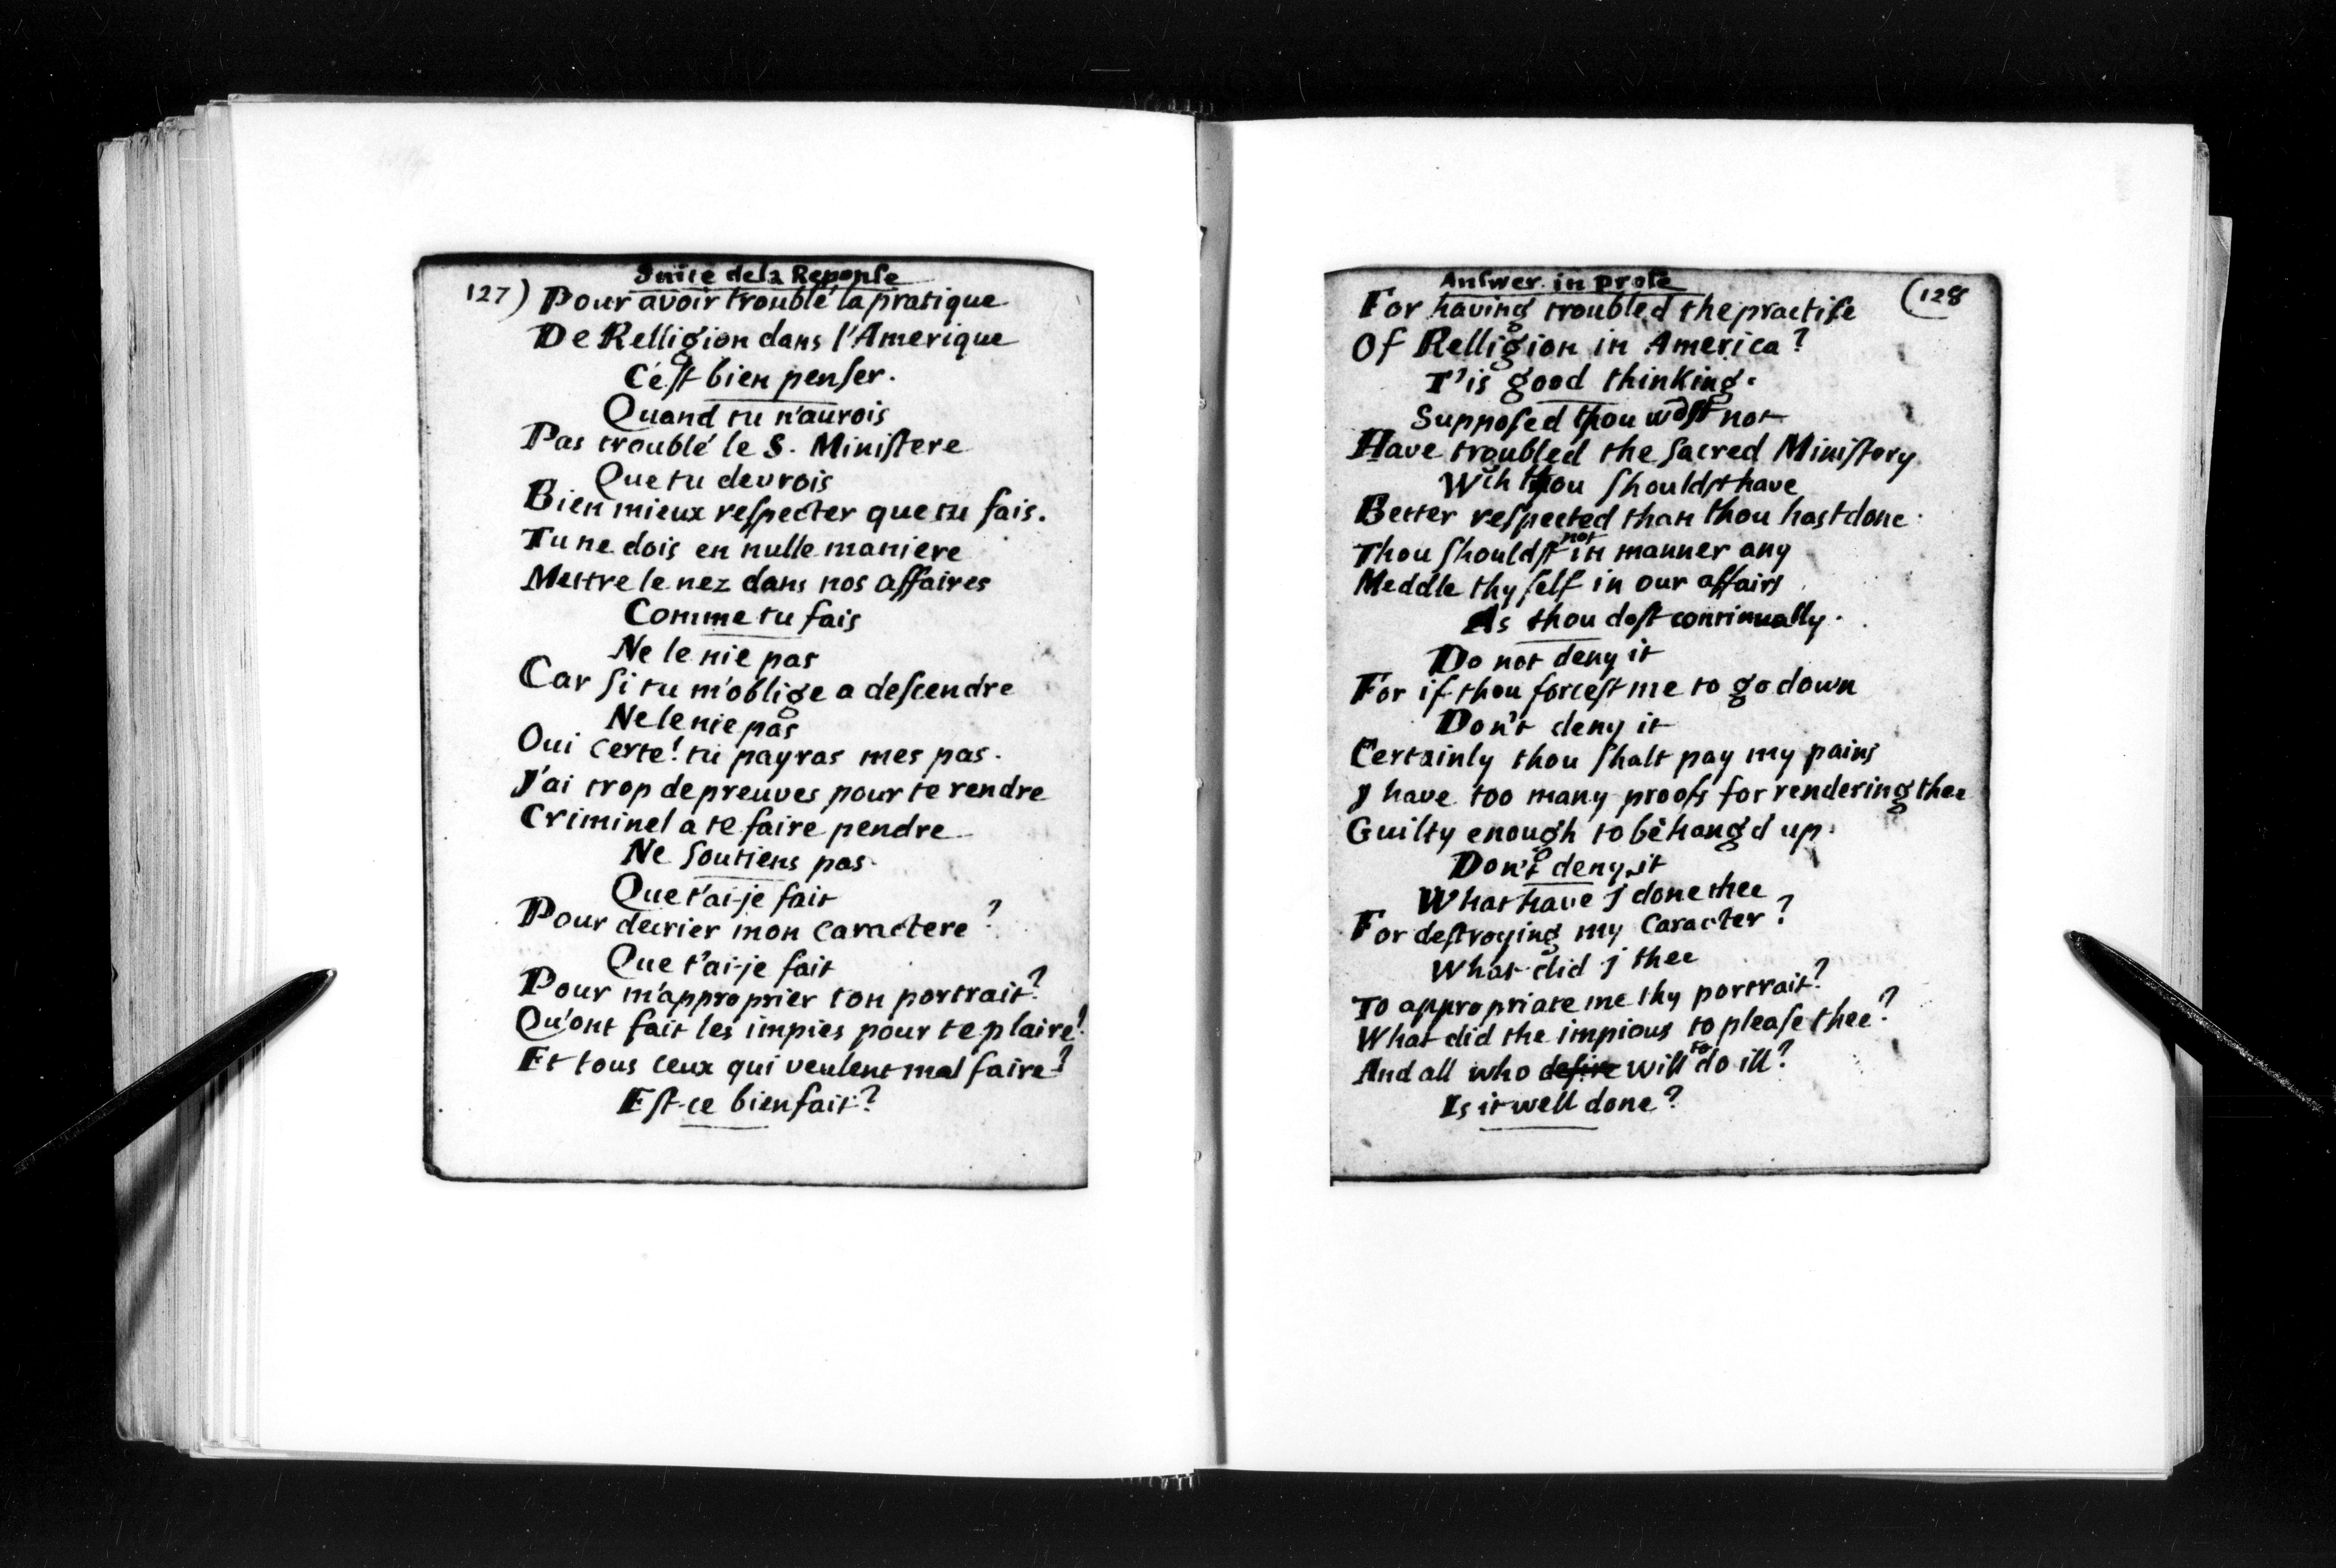 Suite de la Reponse
127) Pour avoir troublé la pratique
De Relligion dans l'Amerique
C'est bien penser.
Quand tu n'aurois
Pas troublé le S. Ministere
Que tu devrois
Bien mieux respecter que tu fais.
Tu ne dois en nulle maniere
Mettre le nez dans nos affaires
Comme tu fais
Ne le nie pas
Car si tu m'oblige a descendre
Ne le nie pas
Oui certe! tu payras mes pas.
J'ai trop de preuves pour te rendre
Criminel a te faire pendre
Ne soutiens pas
Que t'ai-je fait
Pour decrier mon caractere?
Que t'ai-je fait
Pour m'approprier ton portrait?
Qu'ont fait les impies pour te plaire?
Et tous ceux qui veulent mal faire?
Est-ce bien fait?
Answer in prose
(128
For having troubled the practise
Of Relligion in America?
T'is good thinking.
Supposed thou wast not
Have troubled the sacred Ministery
Wch thou shouldst have
Better respected than thou hast done.
Thou shouldst not in manner any
Meddle thy self in our affairs
As thou dost continually.
Do not deny it
For if thou forcest me to go down
Don't deny it
Certainly thou shalt pay my pains
J have too many proofs for rendering thee
Guilty enough to be hang'd up.
Don't deny it
What have J done thee
For destroying my Caracter?
What did J thee
To appropriate me thy portrait?
What did the impious to please thee?
And all who desire will to do ill?
Is it well done?